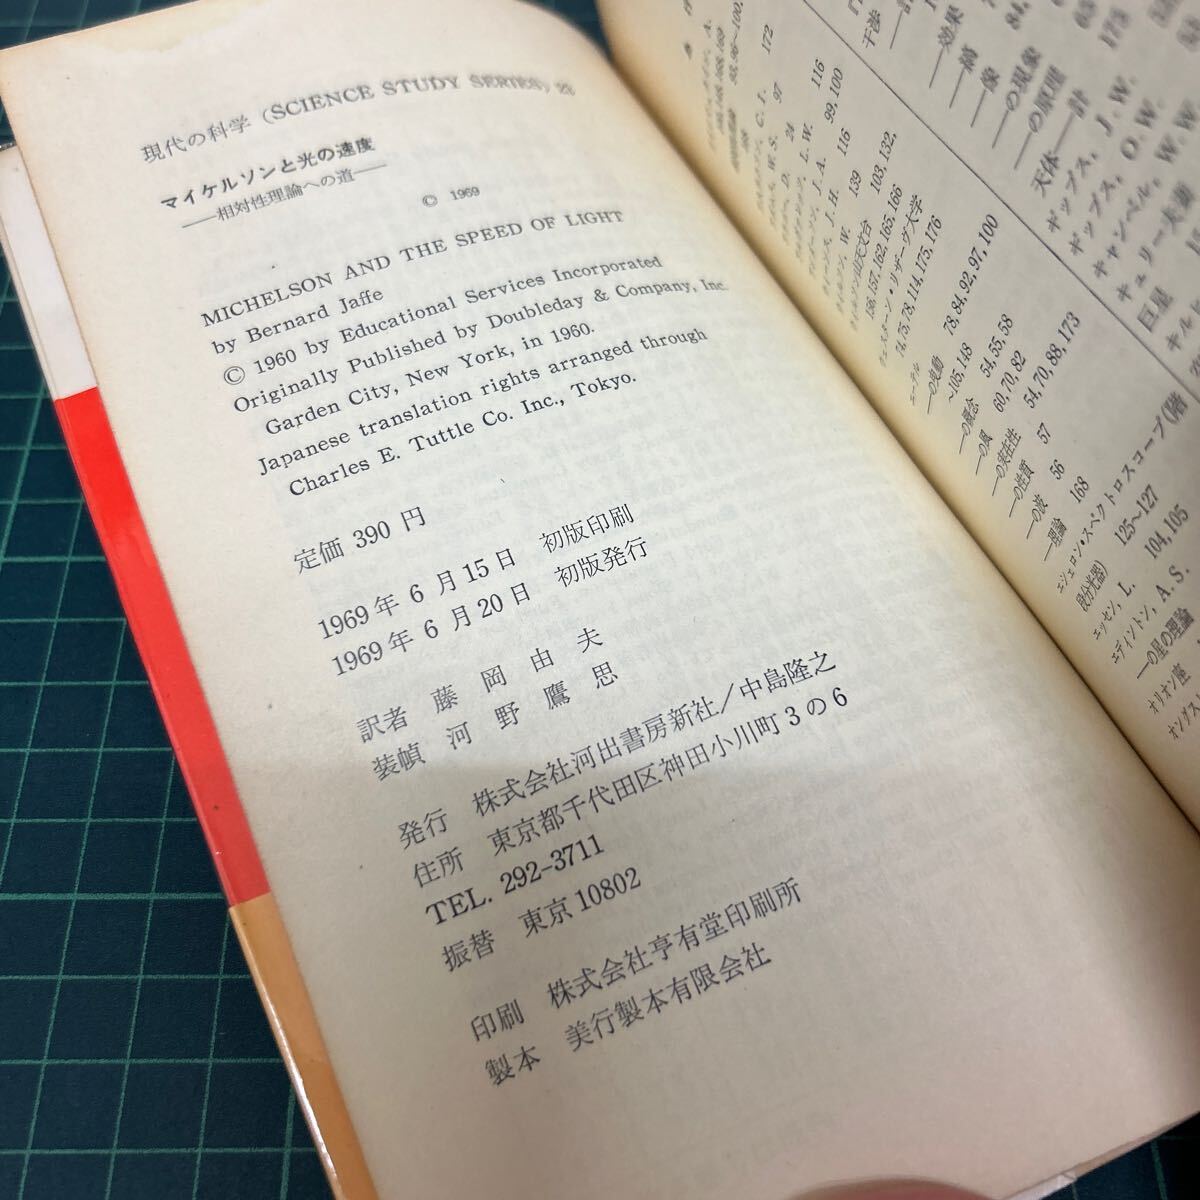 現代の科学 (SCIENCE STUDY SERIES)
マイケルソンと光の速度
——相対性理論への道——
© 1969
MICHELSON AND THE SPEED OF LIGHT
by Bernard Jaffe
© 1960 by Educational Services Incorporated
Originally Published by Doubleday & Company, Inc.
Garden City, New York, in 1960.
Japanese translation rights arranged through
Charles E. Tuttle Co. Inc., Tokyo.
定価 390 円
1969年 6 月15日 初版印刷
1969年 6 月20日 初版発行
訳者 藤岡由夫
装幀 河野鷹思
発行 株式会社河出書房新社／中島隆之
住所 東京都千代田区神田小川町3の6
TEL. 292-3711
振替 東京10802
印刷 株式会社亨有堂印刷所
製本 美行製本有限会社
干渉
——効果
——縞
——像
——の現象
——の原理
——計
天体——
ギッブス, J. W.
ギッブス, O. W.
キャンベル, W. W.
キュリー夫妻
巨星
C. I. 172
W. S. 97
D. 24
L. W. 116
J. A. 99,100
J. H. 116
ウィルソン, W. 139
ウィルソン山天文台 103,132,
156,157,162,165,166
ウェスターン・リザーヴ大学
74,75,78,114,175,176
エーテル
——の流動 78,84,92,97,100
~105,148
——の概念 54,55,58
——の風 60,70,82
——の実在性 54,70,88,173
——の性質 57
——の波 56
——理論 168
エシェロン・スペクトロスコープ(階
段分光器) 125~127
エッセン, L. 104,105
エディントン, A. S.
——の星の理論
オリオン座